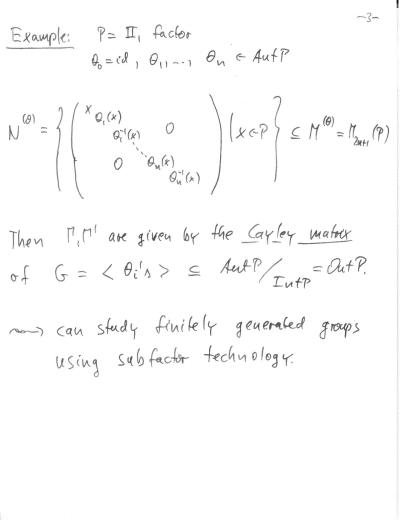 -3-
Example: P = II₁ factor
θ₀ = id, θ₁, ..., θₙ ∈ Aut P
N^(θ) = { ( x θ₁(x) θ₁⁻¹(x) 0 ⋱ 0 θₙ(x) θₙ⁻¹(x) ) | x ∈ P } ⊆ M^(θ) = M₂ₙ₊₁(P)
Then Γ, Γ' are given by the Cayley matrix
of G = < θᵢ's > ⊆ Aut P / Int P = Out P.
⇝ can study finitely generated groups
using subfactor technology.